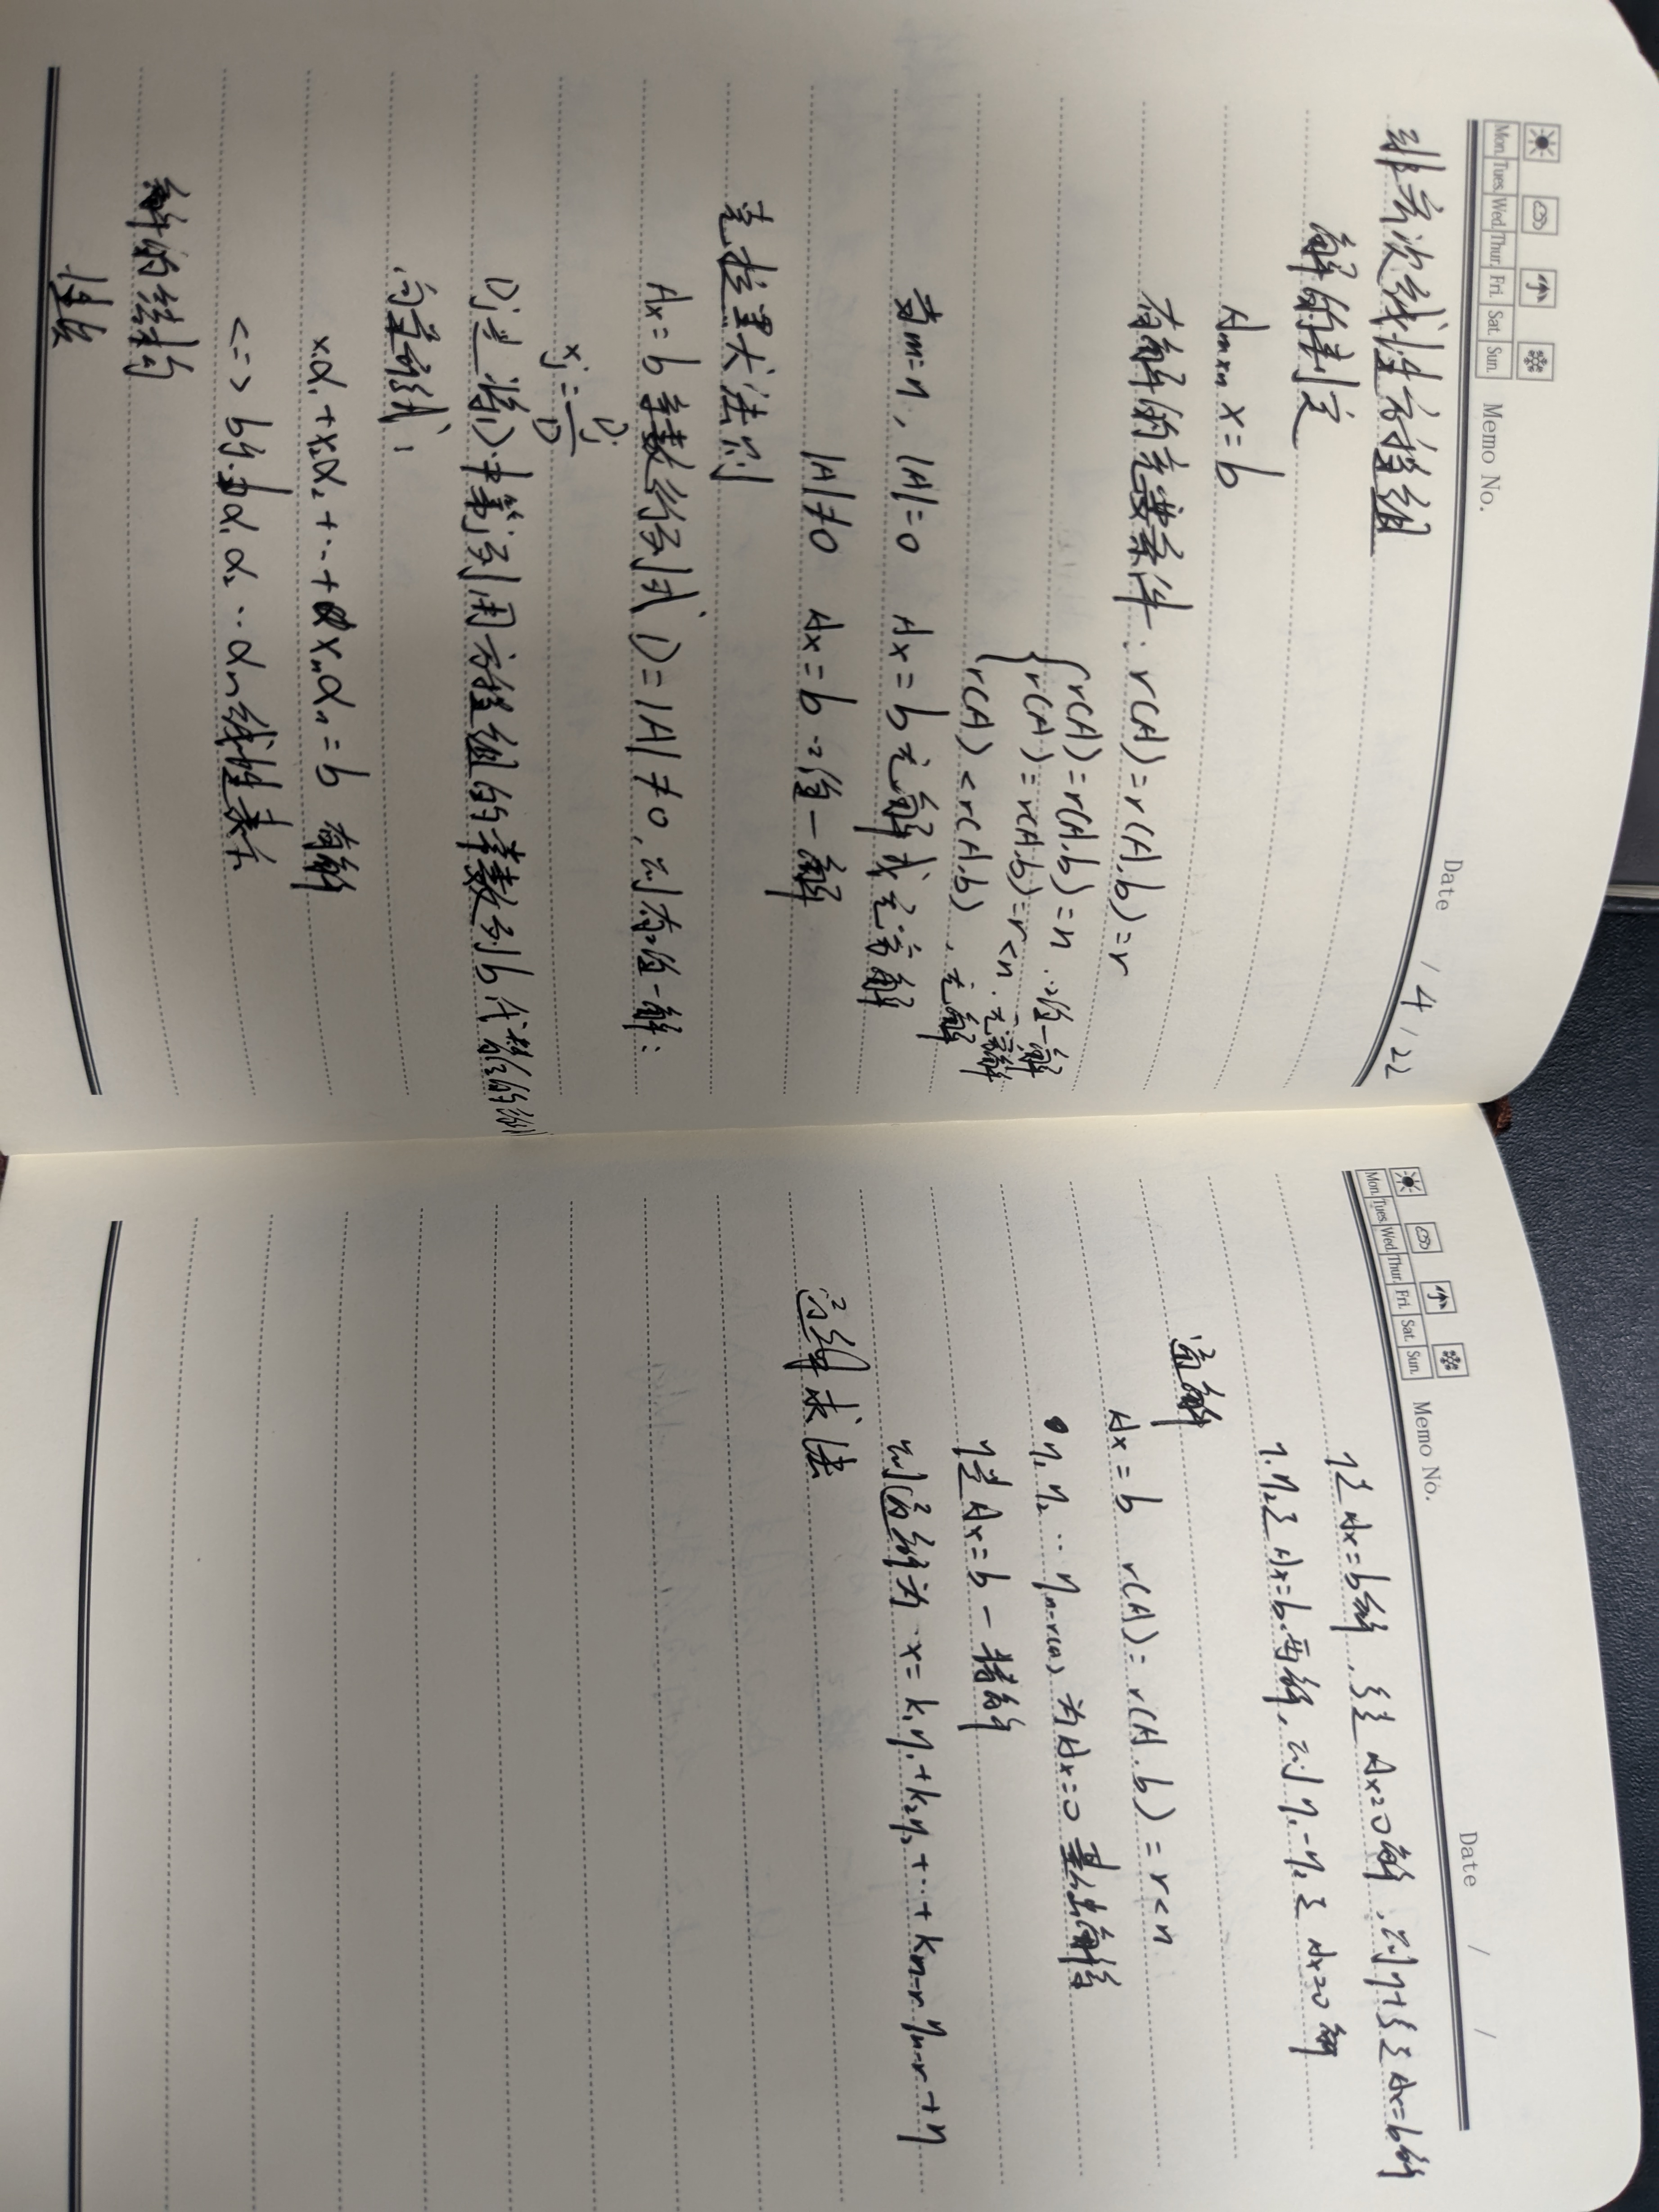 Mon. Tues. Wed. Thur. Fri. Sat. Sun.
Memo No.
Date / 4 / 22
非齐次线性方程组
解的判定
Aₘₓₙ x = b
有解的充要条件: r(A) = r(A,b) = r
{ r(A) = r(A,b) = n, 唯一解
r(A) = r(A,b) = r < n, 无穷解
r(A) < r(A,b), 无解
若m=n, |A|=0 Ax=b无解或无穷解
|A|≠0 Ax=b 唯一解
克拉默法则
Ax=b 系数行列式 D=|A|≠0, 则有唯一解:
xj = Dj/D
Dj是将D中第j列用方程组的常数列b代替的行列式
向量形式:
x₁α₁+x₂α₂+…+xₙαₙ=b 有解
<=> b能由α₁ α₂…αₙ线性表示
解的结构
性质
Mon. Tues. Wed. Thur. Fri. Sat. Sun.
Memo No.
Date / /
η是Ax=b解, ξ是Ax=0解, 则η+ξ是Ax=b解
η₁ η₂是Ax=b两解, 则η₁-η₂是Ax=0解
通解
Ax=b r(A)=r(A,b)=r<n
η₁ η₂ … ηₙ₋ᵣ₍ₐ₎ 为Ax=0基础解系
η是Ax=b一特解
则通解为 x=k₁η₁+k₂η₂+…+kₙ₋ᵣηₙ₋ᵣ+η
通解求法